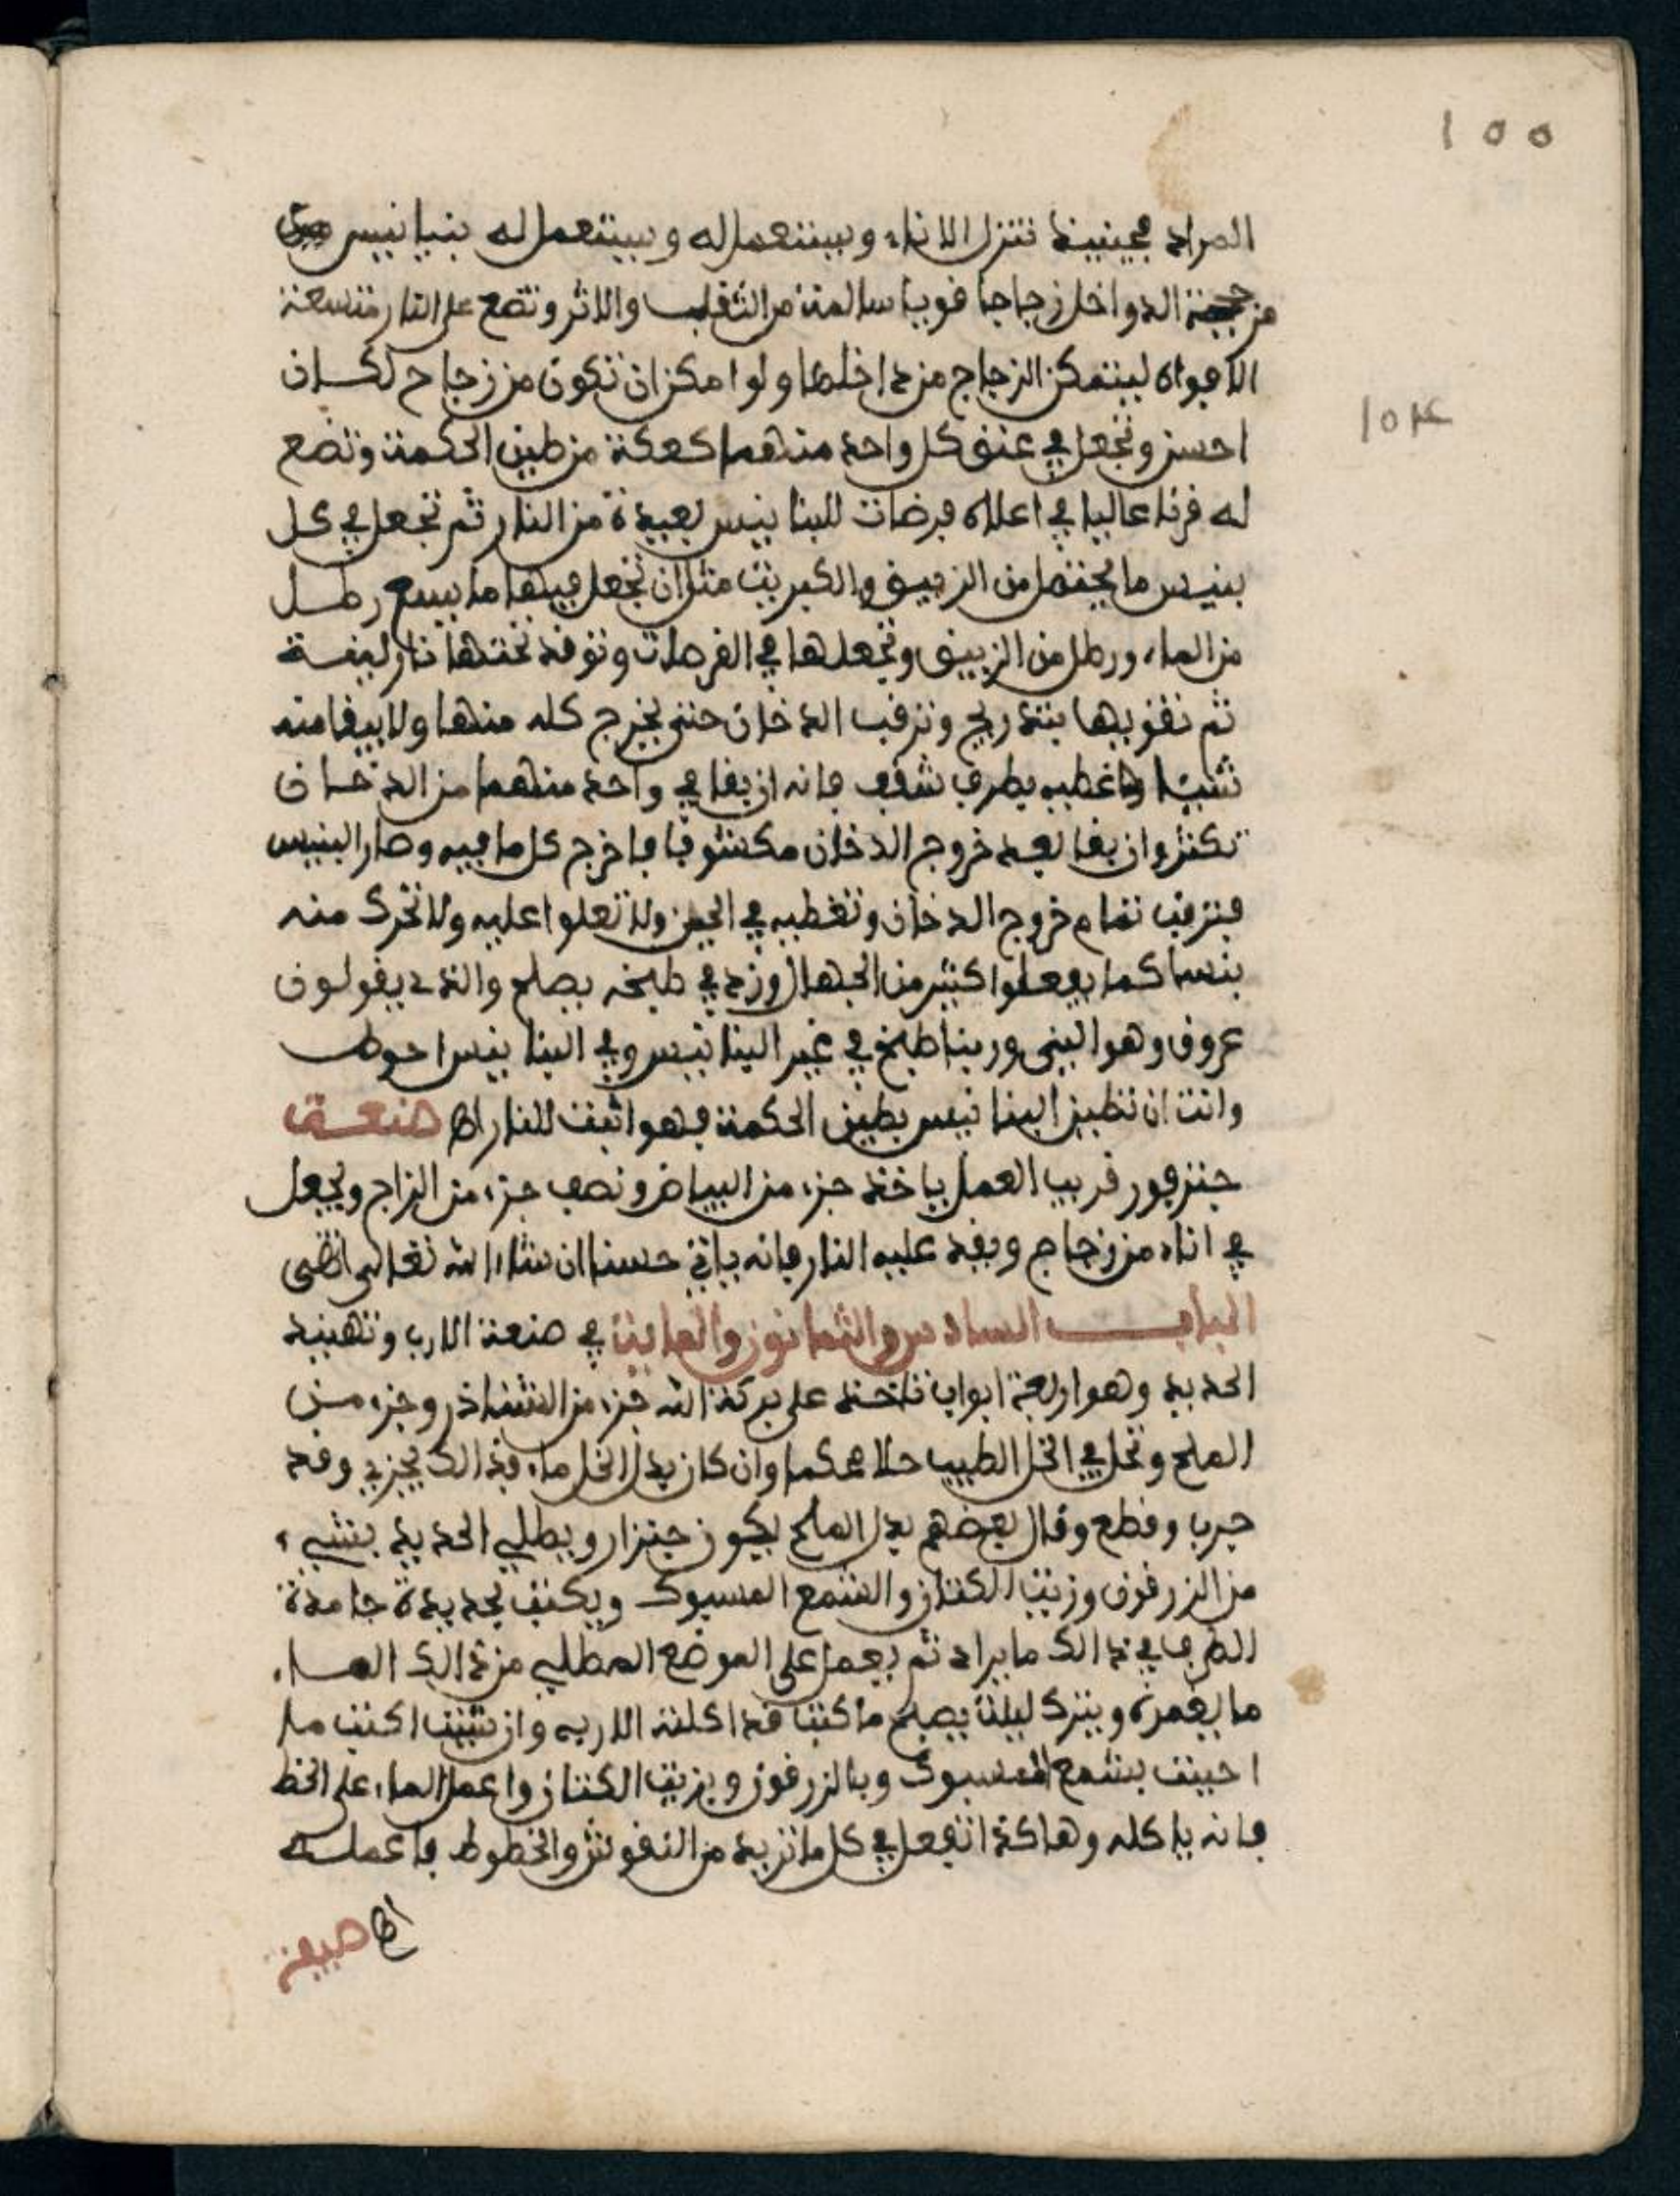 ١٥٥
المراد فحينيذ تنزل الاناء ويستعمل له ويستعمل له بنيانيس
من جهة الدواخل زجاجا قويا سالمة من الثقب والاثر وتضع على النار متسعة
الافواه ليتمكن الزجاج من داخلها ولو امكن ان تكون من زجاج لكان
احسن وتجعل في عنق كل واحد منهما كعكة من طين الحكمة وتضع
له فرنا عاليا في اعلاه فرضات للبنانيس بعيدة من النار ثم تجعل في كل
بنيس ما يحتمل من الزيبق والكبريت مثل ان تجعل فيها ما يسع رطل
من الماء ورطل من الزيبق وتجعلها في الفرضات وتوقد تحتها نار ليفة
ثم تقويها بتدريج وترقب الدخان حتى يخرج كله منها ولا يبقا منه
شيئا وغطيه بطرف شقف فانه ان بقا في واحد منهما من الدخان
تكثر وان بقا بعد خروج الدخان مكشوفا فاخرج كل ما فيه وصار البنيس
فترقب تمام خروج الدخان وتغطيه في الحين ولا تعلوا عليه ولا تحرك منه
بنسا كما يفعلوا كثير من الجهال وزد في طبخه يصلح والذي يقولون
عروق وهو البني وربنا طبخ في غير البنانيس وفي البنانيس احوط
وانت ان تطين البنانيس بطين الحكمة فهو اثبت للنار اهـ صنعة
جنزفور قريب العمل ياخذ جزء من البياض ونصف جزء من الزاج ويجعل
في اناء من زجاج ويقد عليه النار فانه ياتي حسنا ان شاء الله تعالى انتهى
الباب السادس والثمانون والماية في صنعة الارب وتهنيد
الحديد وهو اربعة ابواب تاخذ على بركة الله جزء من النشادر وجزء من
الملح وتحل في الخل الطيب حلا محكما وان كان بدل الخل ماء فذالك يجزي وقد
جرب وقطع وقال بعضهم بدل الملح يكون جنزار ويطلي الحديد بشيء
من الزرقون وزيت الكتان والشمع المسبوك ويكتب بحديدة جامدة
الطرف في ذالك ما يراد ثم يعمل على الموضع المطلي من ذالك الماء
ما يغمره ويترك ليلة يصبح ما كتب قد اكلته الاربه وان شيت اكتب ما
احببت بشمع المسبوك وبالزرقون وبزيت الكتان واعمل الماء على الخط
فانه ياكله وهاكذا تفعل في كل ما تريد من النقوش والخطوط فاعمله
اهـ صيفة
١٥٤